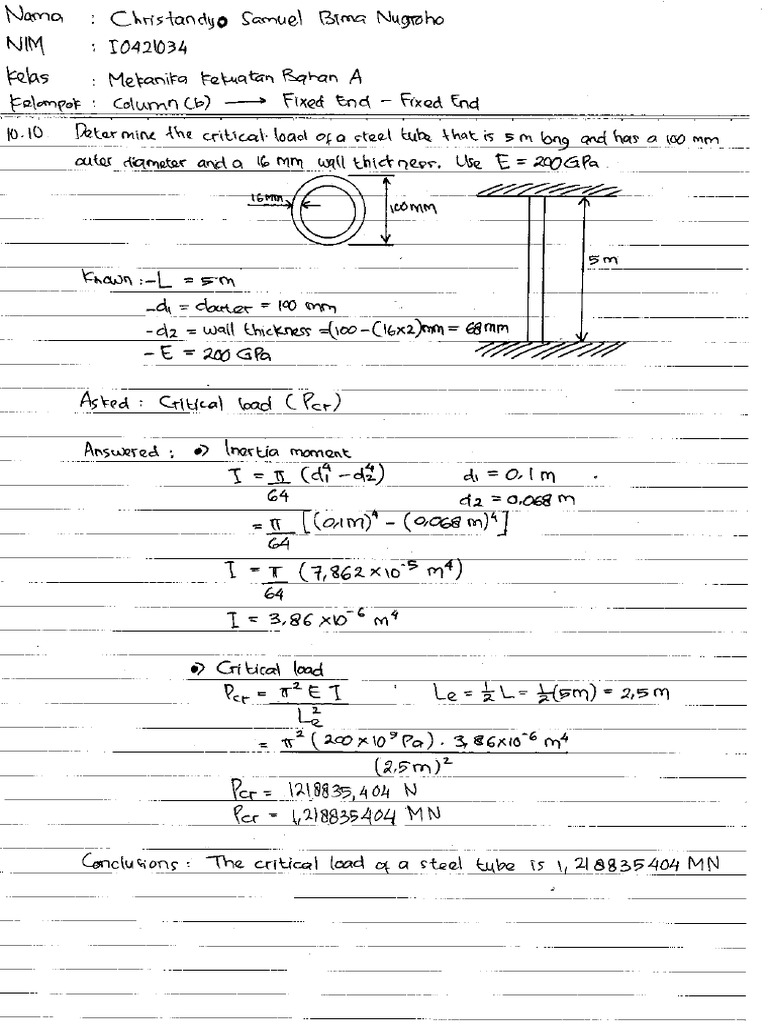 Nama : Christandyo Samuel Bima Nugroho
NIM : I0421034
Kelas : Mekanika Kekuatan Bahan A
Kelompok : Column (b) → Fixed End - Fixed End
10.10 Determine the critical load of a steel tube that is 5 m long and has a 100 mm
outer diameter and a 16 mm wall thickness. Use E = 200 GPa.
16 mm
100 mm
5 m
Known : - L = 5 m
- d1 = douter = 100 mm
- d2 = wall thickness = (100 - (16×2) mm = 68 mm
- E = 200 GPa
Asked : Critical load (Pcr)
Answered : •) Inertia moment
I = π/64 (d1⁴ - d2⁴) d1 = 0,1 m
d2 = 0,068 m
= π/64 [(0,1m)⁴ - (0,068 m)⁴]
I = π/64 (7,862 × 10⁻⁵ m⁴)
I = 3,86 × 10⁻⁶ m⁴
•) Critical load
Pcr = π² E I / Le² Le = ½ L = ½ (5m) = 2,5 m
= π² (200 × 10⁹ Pa) . 3,86×10⁻⁶ m⁴ / (2,5 m)²
Pcr = 1218835,404 N
Pcr = 1,218835404 MN
Conclusions : The critical load of a steel tube is 1,218835404 MN